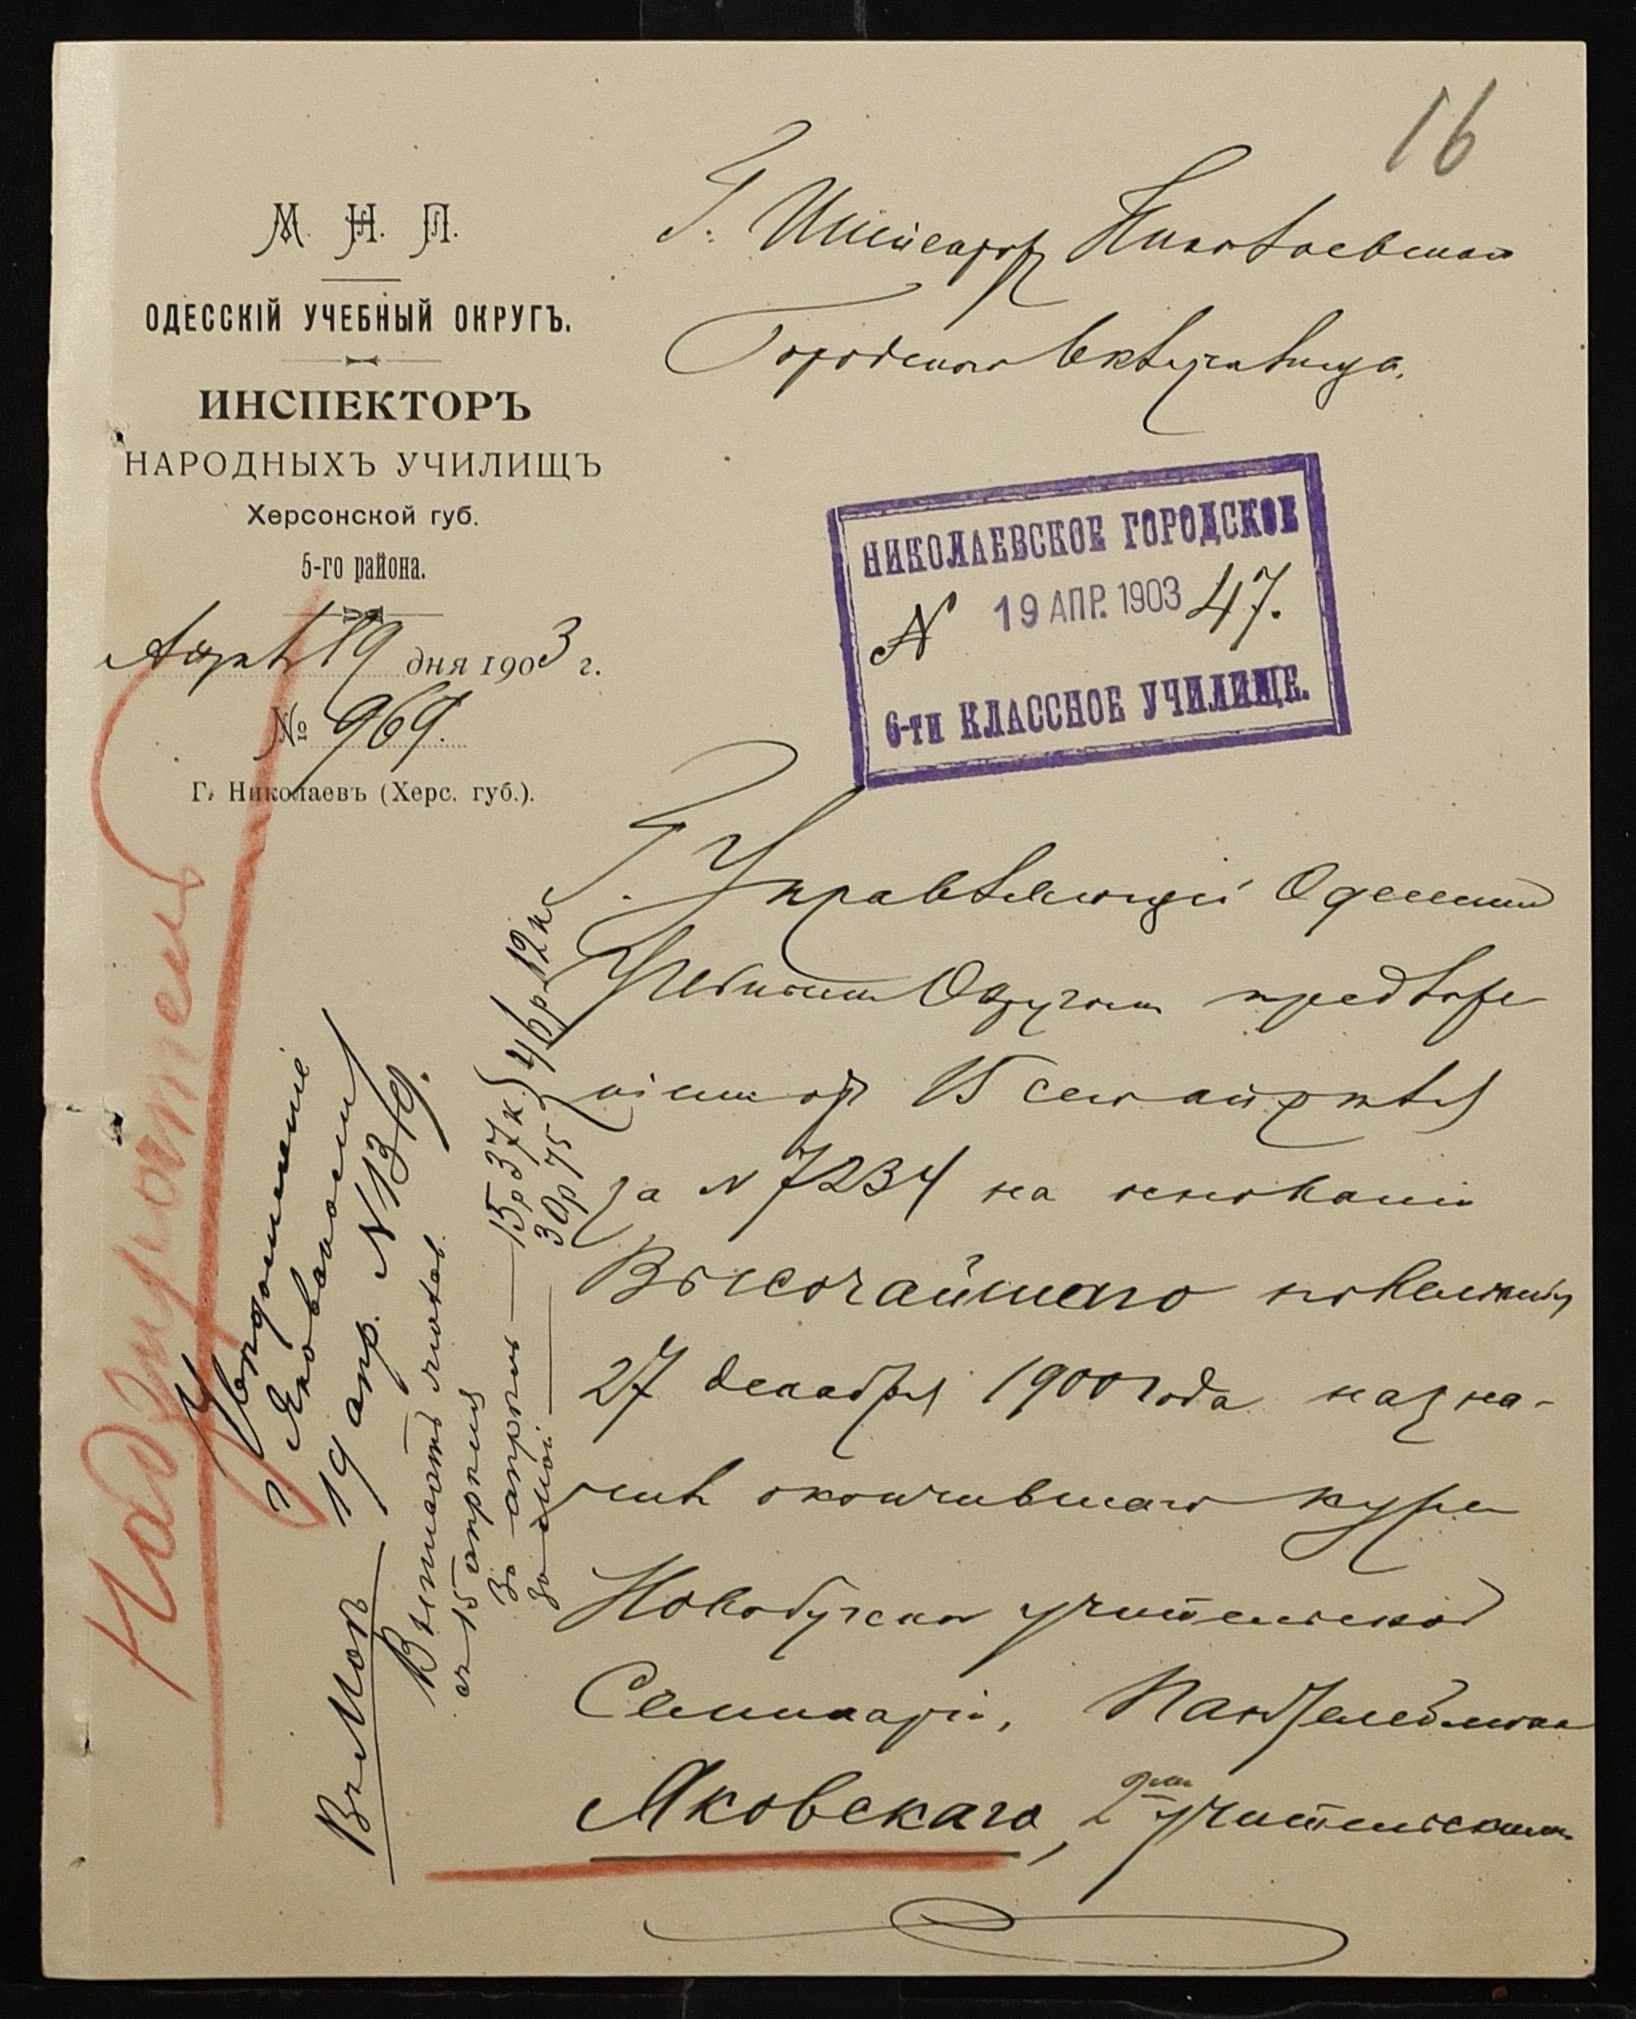 16
М. Н. П.
ОДЕССКІЙ УЧЕБНЫЙ ОКРУГЪ.
ИНСПЕКТОРЪ
НАРОДНЫХЪ УЧИЛИЩЪ
Херсонской губ.
5-го района.
19 дня 1903 г.
№ 969.
Г. Николаевъ (Херс. губ.).
Г. Николаевскаго
Городского
НИКОЛАЕВСКОЕ ГОРОДСКОЕ
N 19 АПР. 1903 47.
6-ти КЛАССНОЕ УЧИЛИЩЕ.
Г. Управляющій Одесскимъ
Учебнымъ Округомъ предложе
ніемъ отъ 15 сего апрѣля
за N 7234 на основаніи
Высочайшаго повелѣнія
27 декабря 1900 года назна-
чилъ окончившаго курсъ
Новобугской учительской
Семинаріи, Пантелеймона
Яковскаго, учительскимъ
Надзиратель
Увѣдомленіе
г. Яковскому
19 апр. N 139.
Выписать
съ 15 апрѣля
За апрѣль — 15р 37к. } 46р 12к
За май — 30р 75